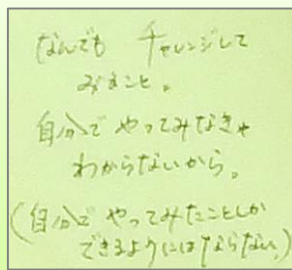 なんでも チャレンジして
みること。
自分で やってみなきゃ
わからないから。
(自分で やってみたことしか
できるようにはならない。)